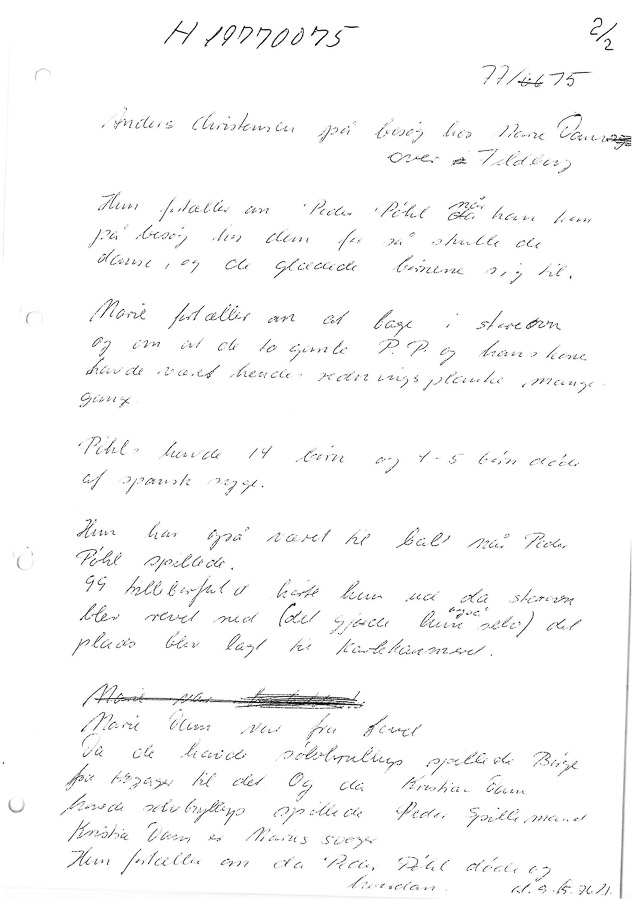 H 19770075
2/2
77/75
Anders Christensen på besøg hos Marie Dam
over i Feldborg
Hun fortæller om Peder Pøhl når han kom
på besøg hos dem for så skulle de
danse, og de glædede børnene sig til.
Marie fortæller om at bage i storeovn
og om at de to gamle P.P. og hans kone
havde været hendes redningsplanke mange
gange
Pøhls havde 14 børn og 4-5 børn døde
af spansk syge.
Hun har også været til bals når Peder
Pøhl spillede.
99 trillebørfuld kørte hun ud da storeovn
blev revet ned (det gjorde hun også selv) det
plads blev lagt til karlekammeret.
Marie var
Marie Dam var fra
Da de havde sølvbryllup spillede Børge
fra til det Og da Kristian Dam
havde sølvbryllup spillede Peder Spillemand
Kristian Dam er svoger
Hun fortæller om da Peder Pøhl døde og
hvordan.